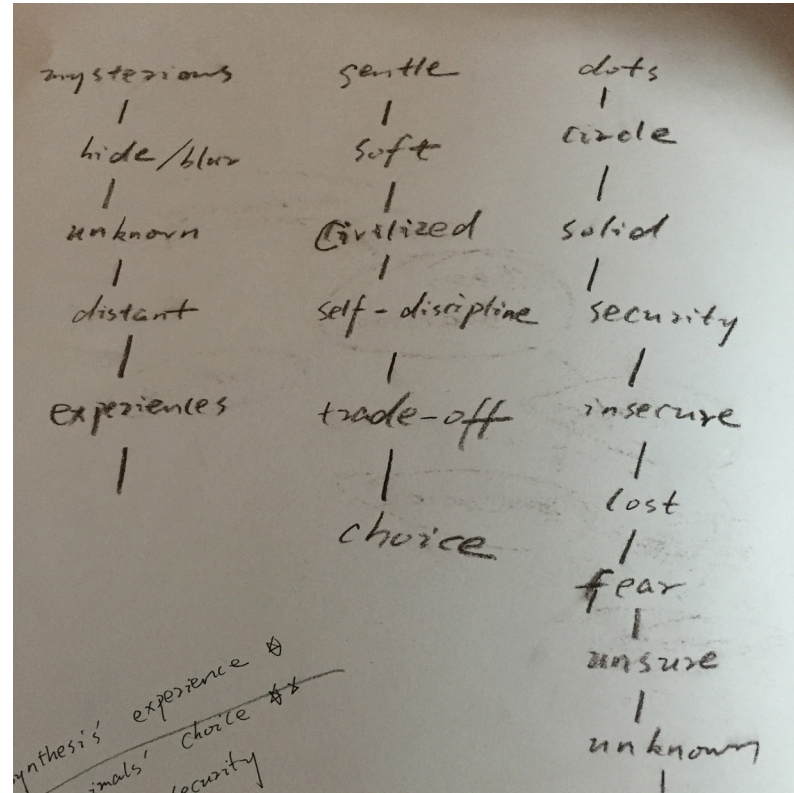 mysterious
hide/blur
unknown
distant
experiences
gentle
soft
Civilized
self-discipline
trade-off
choice
dots
circle
solid
security
insecure
lost
fear
unsure
unknown
experience
choice
security